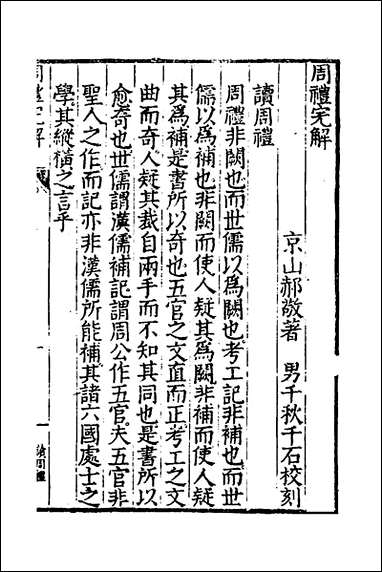 周禮完解
京山郝敬著　男千秋千石校刻
讀周禮
周禮非闕也而世儒以爲闕也考工記非補也而世
儒以爲補也非闕而使人疑其爲闕非補而使人疑
其爲補是書所以奇也五官之文直而正考工之文
曲而奇人疑其裁自兩手而不知其同也是書所以
愈奇也世儒謂漢儒補記謂周公作五官夫五官非
聖人之作而記亦非漢儒所能補其諸六國處士之
學其縱横之言乎
讀周禮